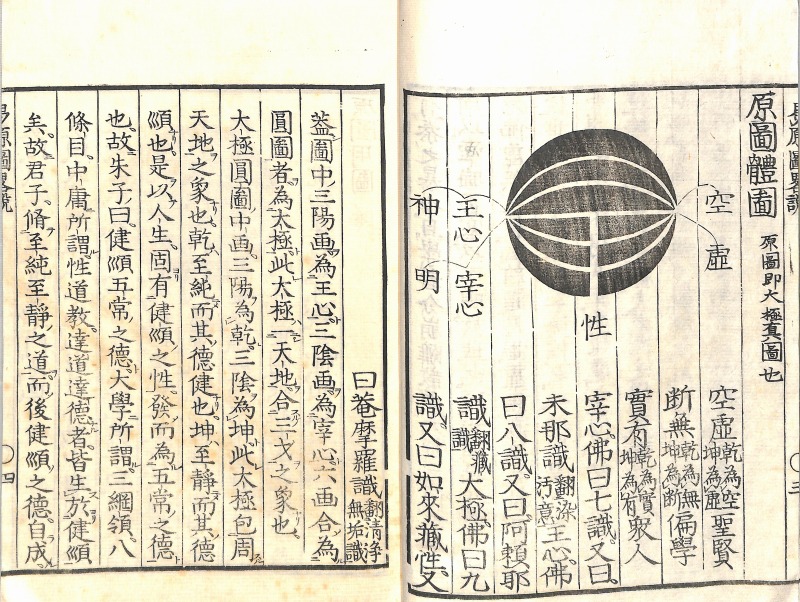 原圖體圖 原圖即大極真圖也
空虛
性
王心 宰心
神明
空虛 乾為空 坤為虛 聖賢
斷無 乾為無 坤為斷 偏學
實有 乾為實 坤為有 衆人
宰心佛曰七識又曰
末那識 翻染汚意 王心佛
曰八識又曰阿頼耶
識 翻藏識 大極佛曰九
識又曰如來藏性又
三
曰菴摩羅識 翻清浄無垢識
葢圖中三陽画為王心三陰画為宰心六画合為
圓圖者為太極此大極一天地合三才之象也
大極圓圖中画三陽為乾三陰為坤此太極包周
天地之象也乾至純而其德健也坤至靜而其德
順也是以人生固有健順之性發而為五常之德
也故朱子曰健順五常之德大學所謂三綱領八
條目中庸所謂性道教達道達德者皆生於健順
矣故君子脩至純至靜之道而後健順之德自成
易原圖畧說
四